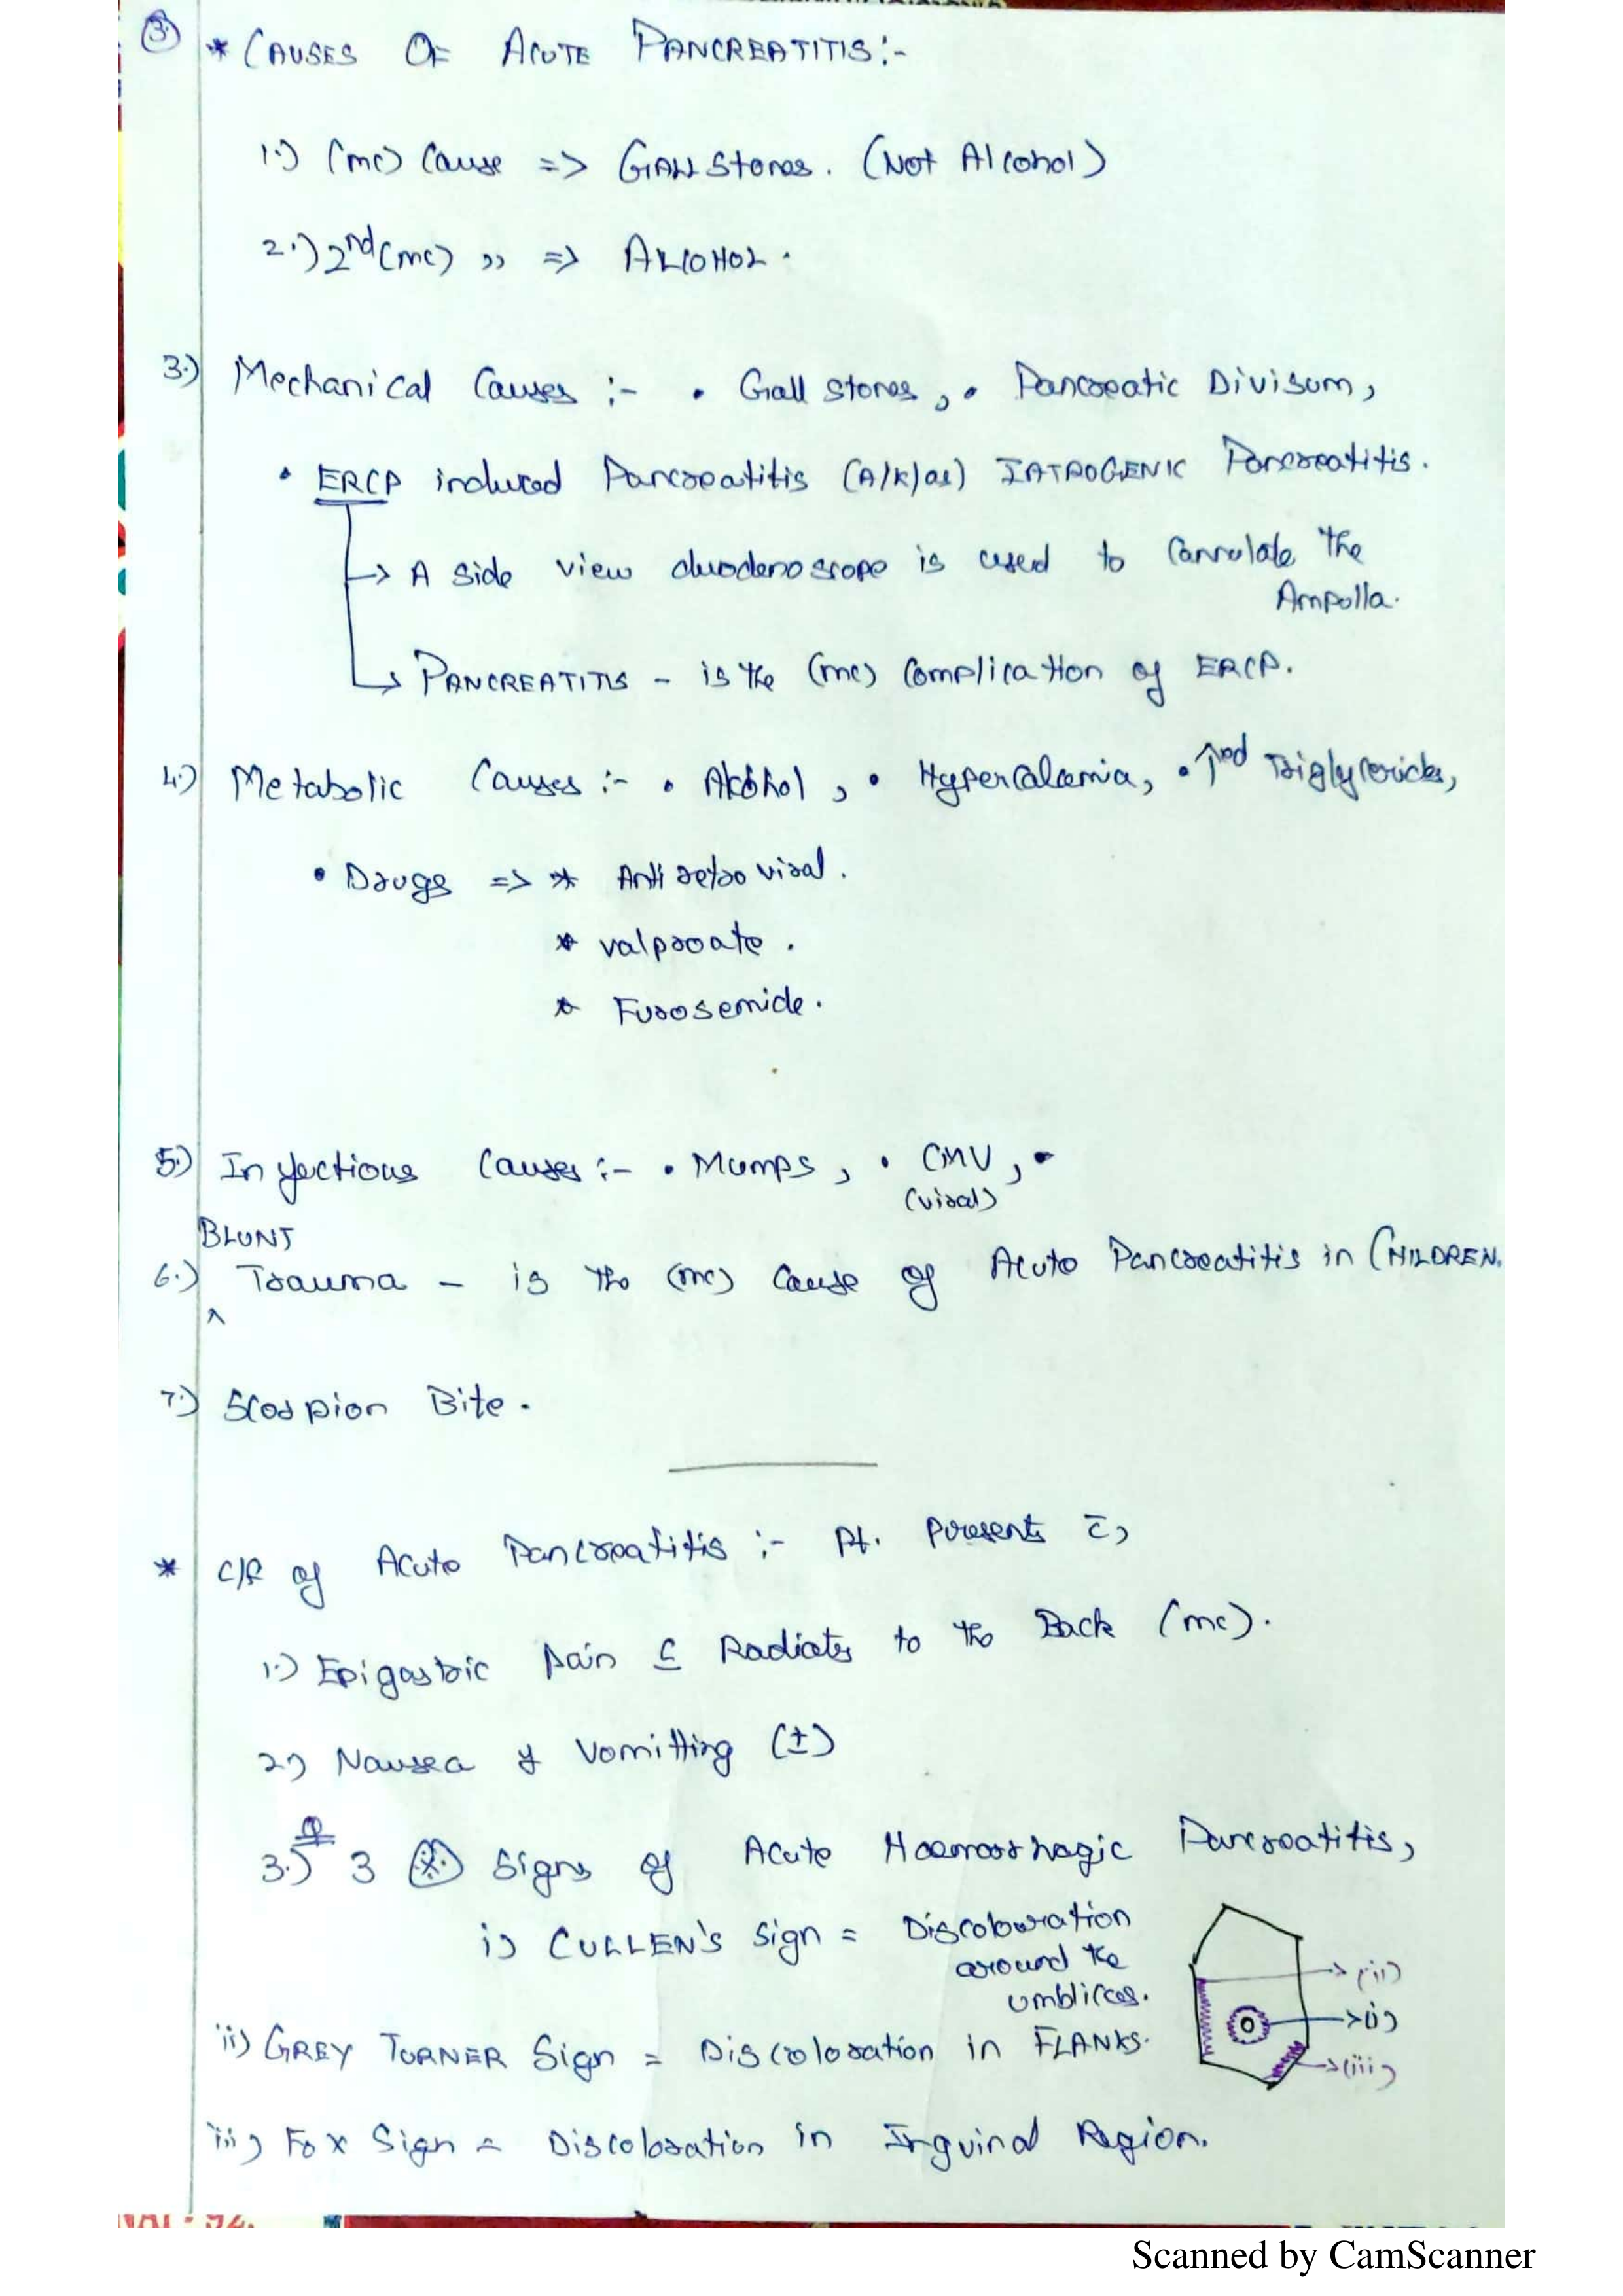 ③ * CAUSES OF ACUTE PANCREATITIS :-
1.) (mc) Cause => GALL Stones. (Not Alcohol)
2.) 2nd (mc) ,, => ALCOHOL.
3.) Mechanical Causes :- • Gall stones, • Pancreatic Divisum,
• ERCP induced Pancreatitis (A/K/as) IATROGENIC Pancreatitis.
-> A side view duodenoscope is used to Cannulate the
Ampulla.
-> PANCREATITIS - is the (mc) Complication of ERCP.
4.) Metabolic Causes :- • Alcohol, • Hypercalcemia, • ↑ed Triglycerides,
• Drugs => * Anti retro viral.
* valproate.
* Furosemide.
5.) Infectious Causes :- • Mumps, • CMV, •
(viral)
BLUNT
6.) Trauma - is the (mc) Cause of Acute Pancreatitis in CHILDREN.
^
7.) Scorpion Bite.
* C/F of Acute Pancreatitis :- Pt. presents c̄,
1.) Epigastric pain c̄ Radiates to the Back (mc).
2.) Nausea & Vomitting (±)
Q
3.) 3 * Signs of Acute Haemorrhagic Pancreatitis,
i) CULLEN'S sign = Discolouration
around the
umblicus.
-> (ii)
-> (i)
ii) GREY TURNER Sign = Discoloration in FLANKS.
-> (iii)
iii) Fox Sign = Discoloration in Inguinal Region.
Scanned by CamScanner